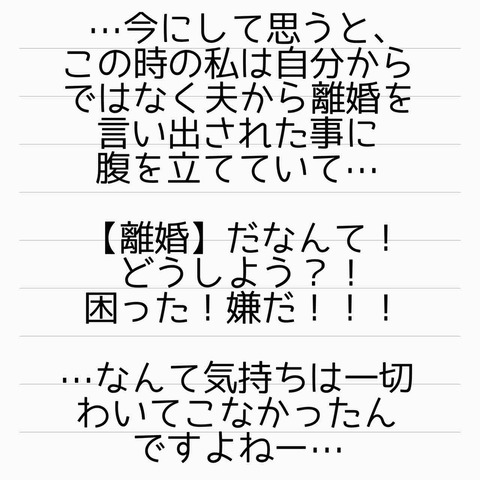 …今にして思うと、
この時の私は自分から
ではなく夫から離婚を
言い出された事に
腹を立てていて…
【離婚】だなんて！
どうしよう？！
困った！嫌だ！！！
…なんて気持ちは一切
わいてこなかったん
ですよねー…